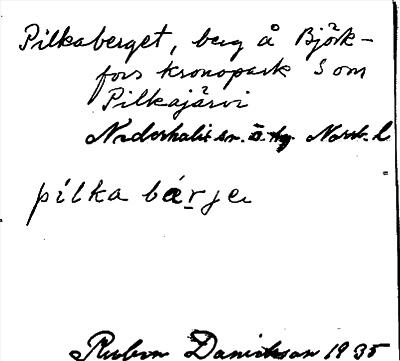 Pilkaberget, berg å Björk-
fors kronopark S om
Pilkajärvi
Nederkalix sn. Norrb. l
pilka bárje
Ruben Danielsson 1935